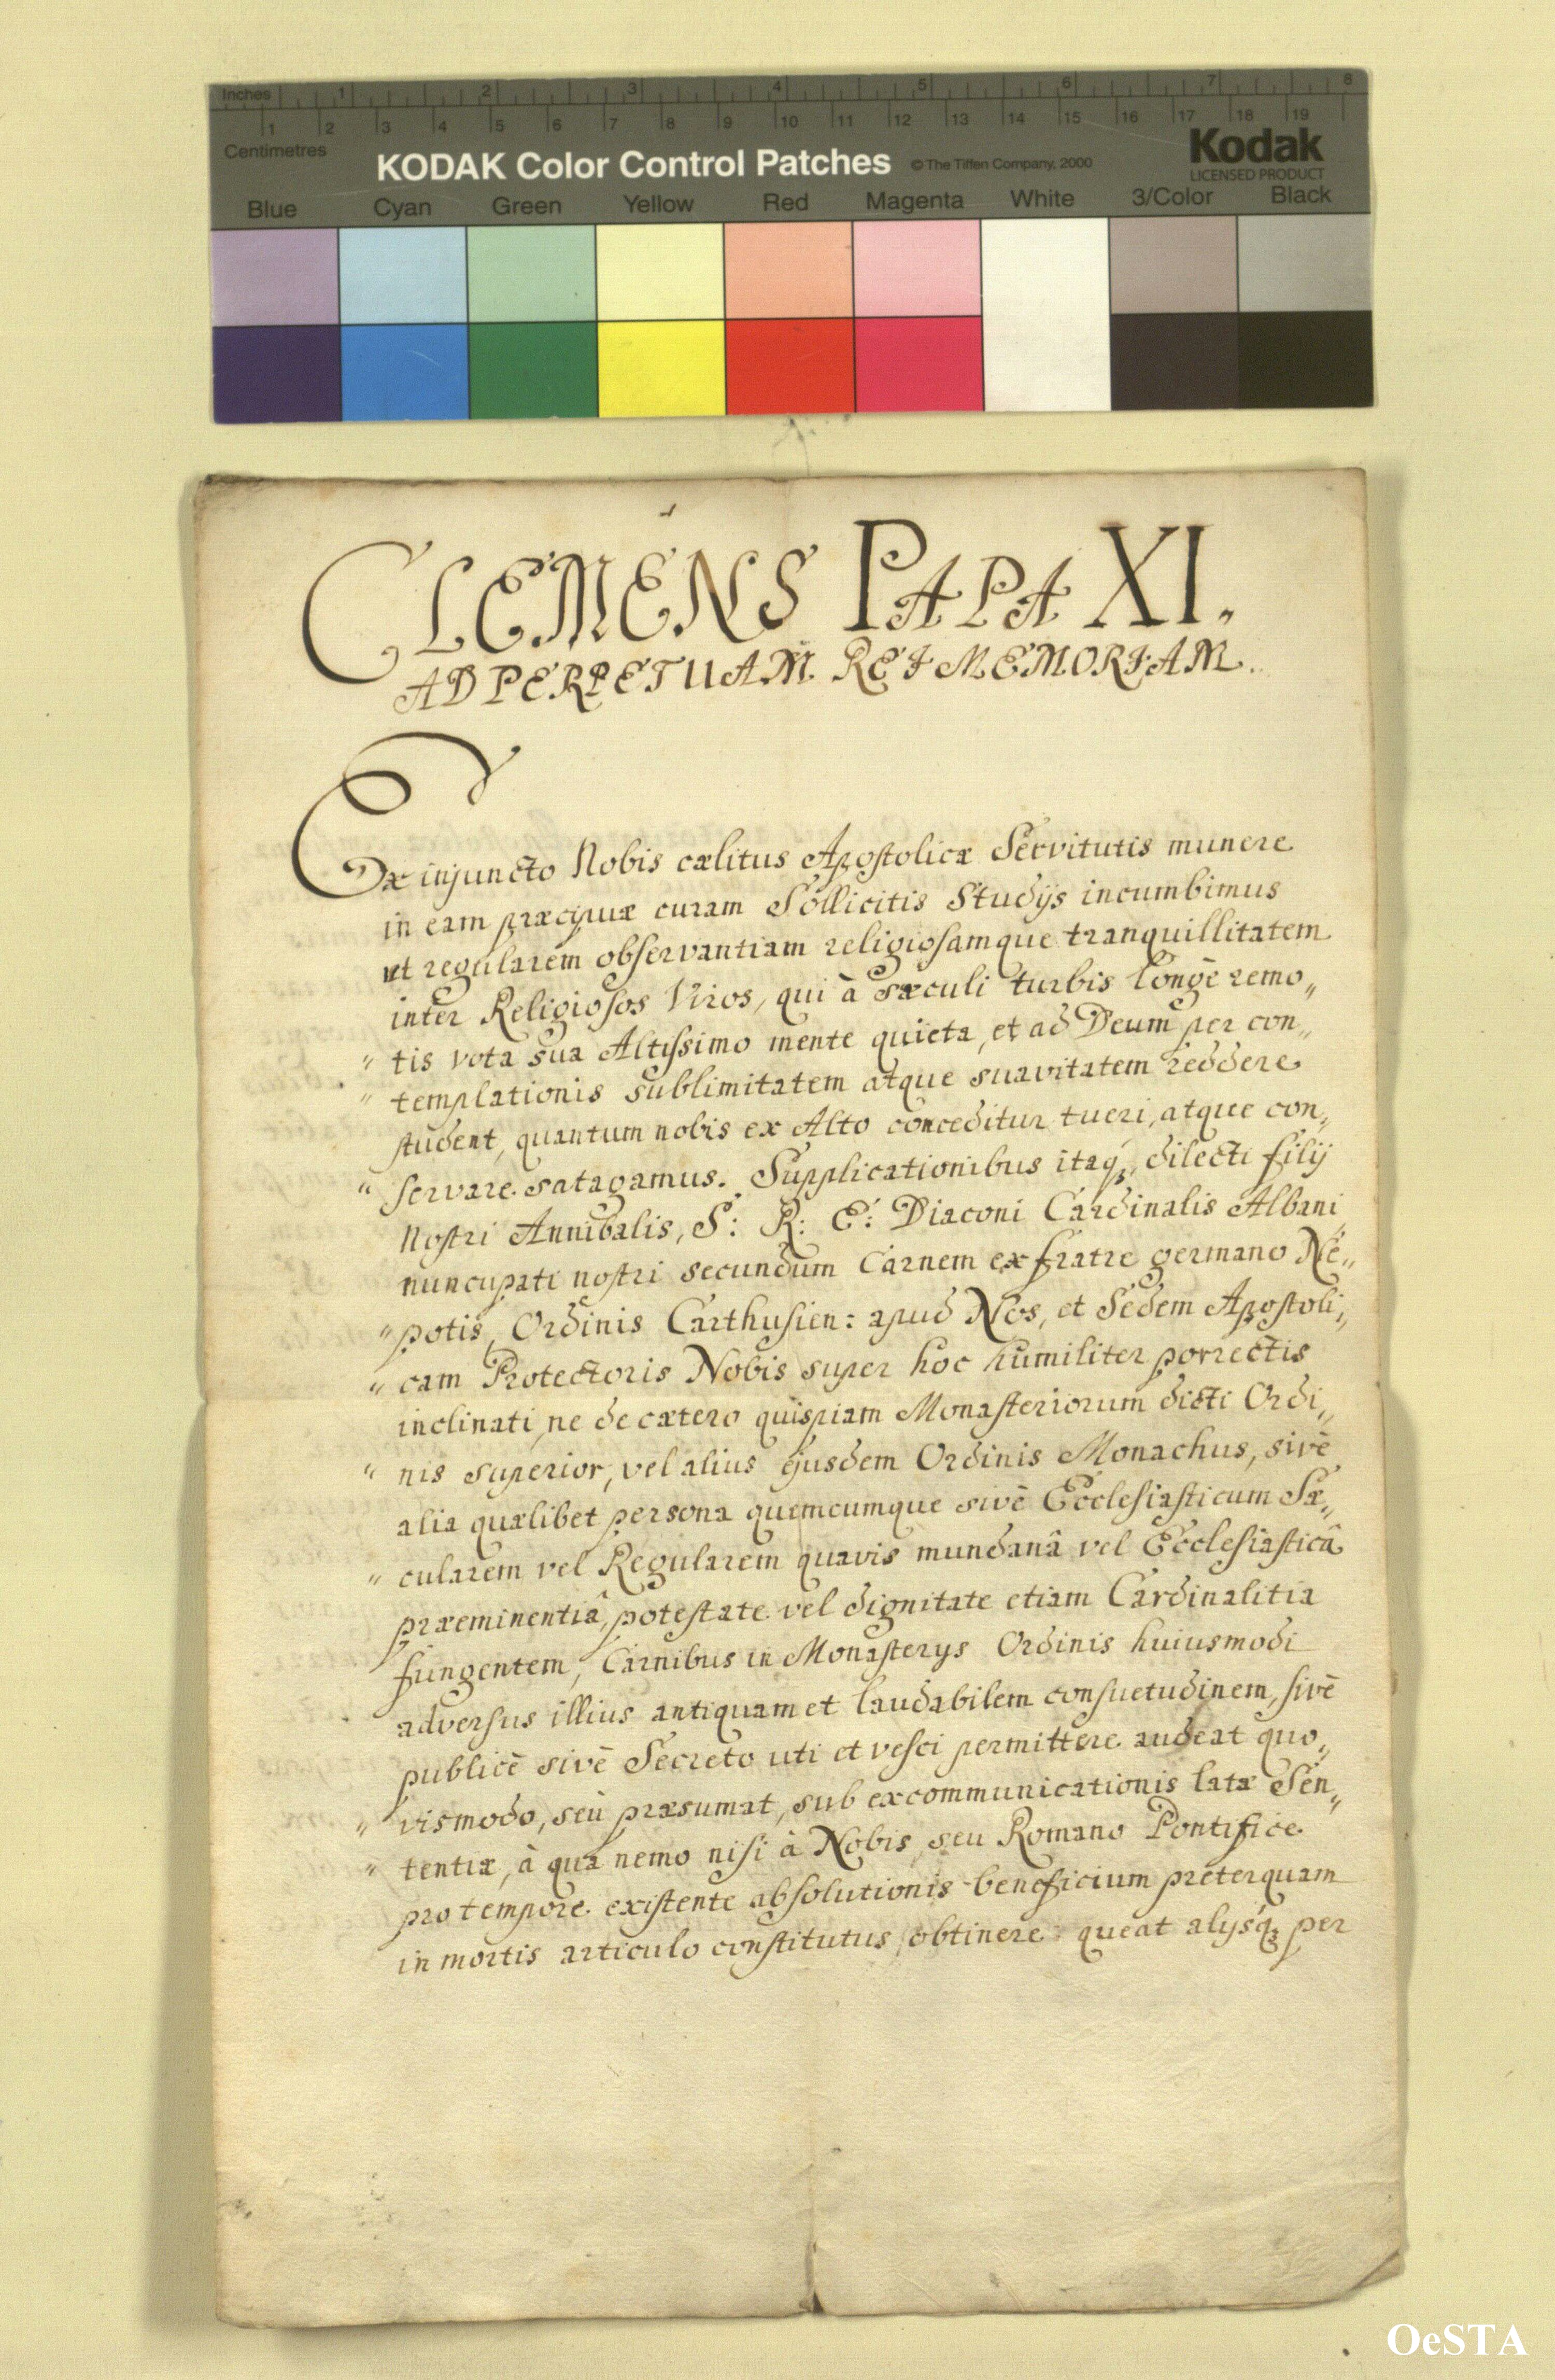 Inches 1 2 3 4 5 6 7 8
1 2 3 4 5 6 7 8 9 10 11 12 13 14 15 16 17 18 19
Centimetres
KODAK Color Control Patches © The Tiffen Company, 2000 Kodak
LICENSED PRODUCT
Blue Cyan Green Yellow Red Magenta White 3/Color Black
CLEMENS PAPA XI.
AD PERPETUAM REI MEMORIAM.
Ex injuncto Nobis cælitus Apostolicæ Servitutis munere
in eam præcipuæ curam Sollicitis Studijs incumbimus
ut regularem observantiam religiosamque tranquillitatem
inter Religiosos Viros, qui à Sæculi turbis longè remo„
„ tis vota sua Altissimo mente quieta, et ad Deum per con„
„ templationis sublimitatem atque suavitatem reddere
student, quantum nobis ex Alto conceditur tueri, atque con„
„ servare satagamus. Supplicationibus itaq₃, dilecti filij
Nostri Annibalis, S: R: E: Diaconi Cardinalis Albani
nuncupati nostri secundum Carnem ex fratre germano Ne„
„ potis, Ordinis Carthusien: apud Nos, et Sedem Apostoli„
„ cam Protectoris Nobis super hoc humiliter porrectis
inclinati, ne de cætero quispiam Monasteriorum dicti Ordi„
„ nis superior, vel alius ejusdem Ordinis Monachus, sivè
alia quælibet persona quemcumque sivè Ecclesiasticum Sæ„
„ cularem vel Regularem quavis mundanâ vel Ecclesiasticâ
præeminentiâ, potestate vel dignitate etiam Cardinalitia
fungentem, Carnibus in Monasterys Ordinis huiusmodi
adversus illius antiquam et laudabilem consuetudinem, sivè
publicè sivè Secreto uti et vesci permittere audeat quo„
„ vismodo, seù præsumat, sub excommunicationis latæ Sen„
„ tentiæ, à quâ nemo nisi à Nobis, seu Romano Pontifice
pro tempore existente absolutionis beneficium præterquam
in mortis articulo constitutus, obtinere queat alysq₃ per
OeSTA